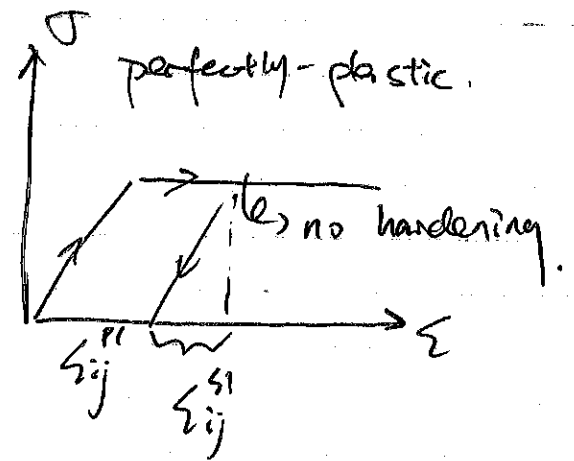 σ
perfectly-plastic.
no hardening.
ε
ε_ij^pl
ε_ij^el